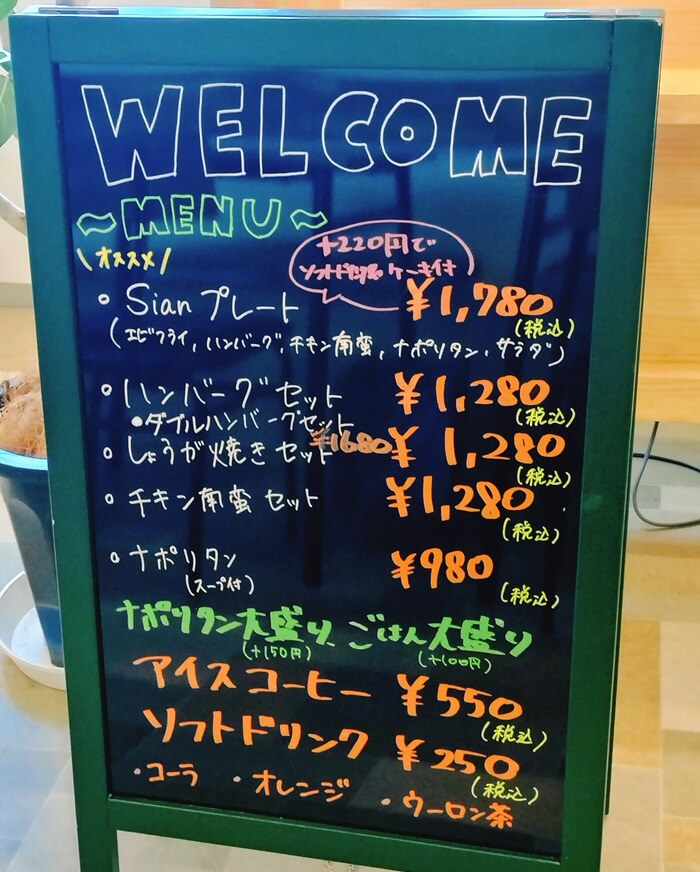 WELCOME
~MENU~
\オススメ/
+220円で
ソフトドリンク&ケーキ付
・Sianプレート ¥1,780
(税込)
(エビフライ,ハンバーグ,チキン南蛮,ナポリタン,サラダ)
・ハンバーグセット ¥1,280
(税込)
・ダブルハンバーグセット ¥1680
・しょうが焼きセット ¥1,280
(税込)
・チキン南蛮セット ¥1,280
(税込)
・ナポリタン ¥980
(スープ付) (税込)
ナポリタン大盛り、ごはん大盛り
(+150円) (+100円)
アイスコーヒー ¥550
(税込)
ソフトドリンク ¥250
(税込)
・コーラ ・オレンジ ・ウーロン茶